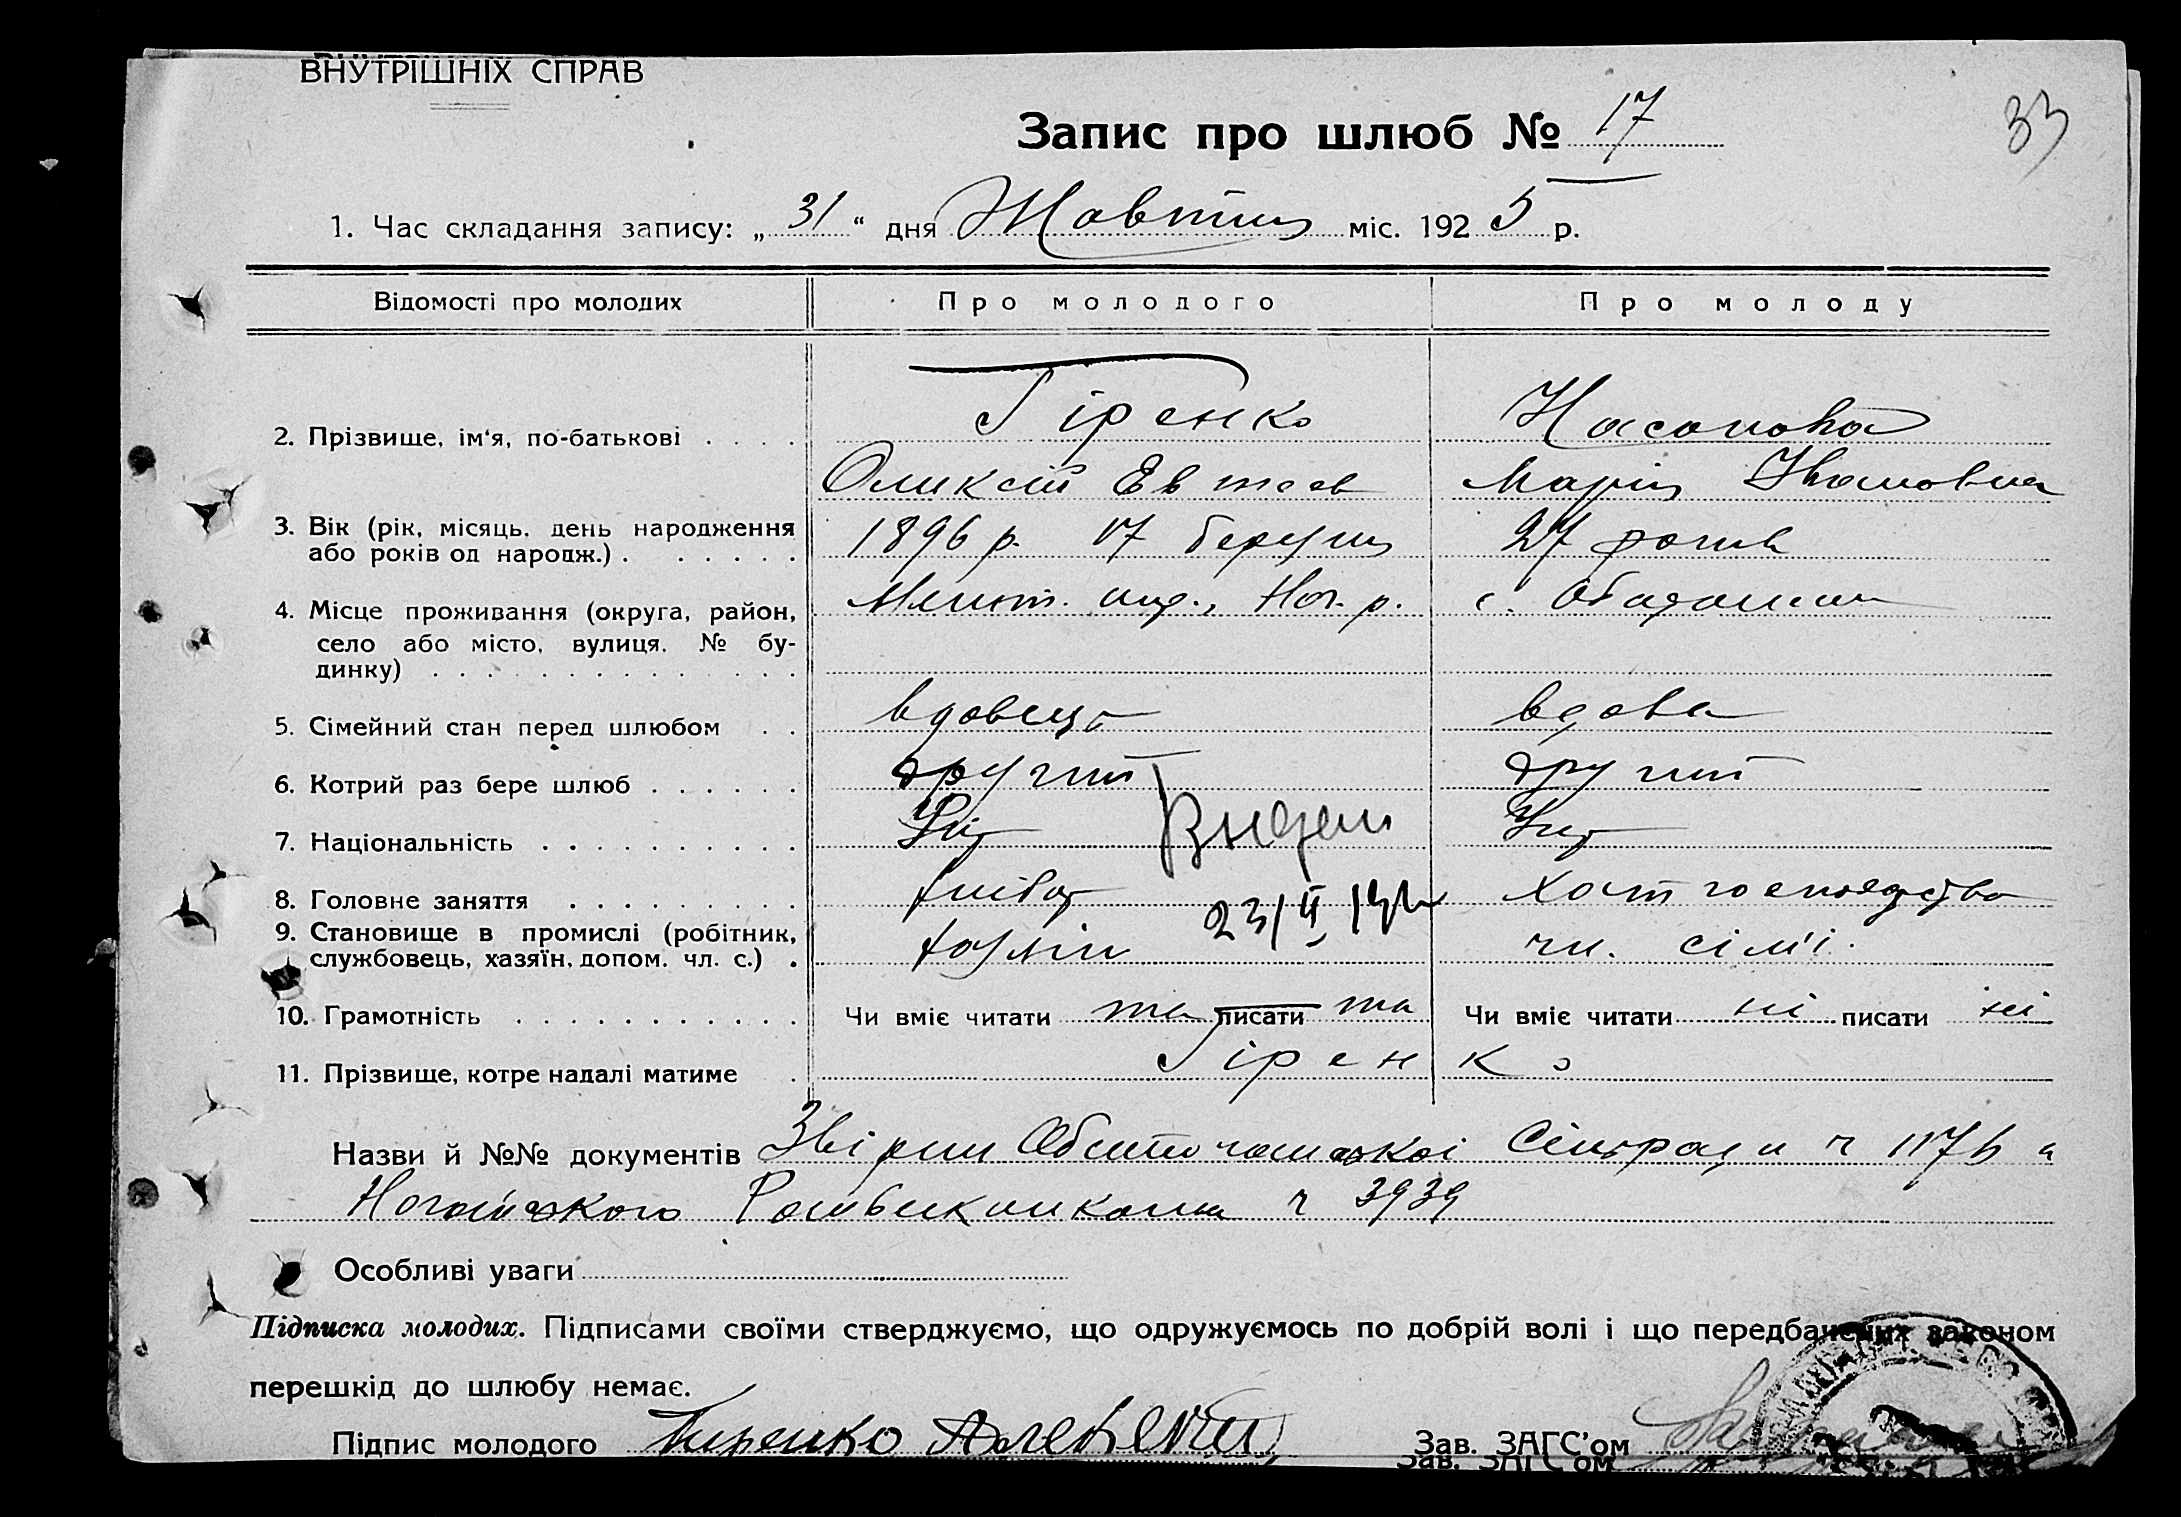 ВНУТРІШНІХ СПРАВ
Запис про шлюб № 17
33
1. Час складання запису: „ 31 “ дня Жовтня міс. 1925 р.
Відомості про молодих Про молодого Про молоду
Гіренко
2. Прізвище, ім‘я, по-батькові . . . .
Оликсій Евтеев Марія Ивановна
3. Вік (рік, місяць, день народження 1896 р. 17 27 років
або років од народж.) . . . . . .
4. Місце проживання (округа, район, Меліт. окр., Ног. р. с.
село або місто, вулиця, № бу-
динку) . . . . . . . . . . . . . .
5. Сімейний стан перед шлюбом . . вдовець вдова
6. Котрий раз бере шлюб . . . . . . другий другий
7. Національність . . . . . . . . . . Укр
8. Головне заняття . . . . . . . . .
23/II
9. Становище в промислі (робітник,
службовець, хазяїн, допом. чл. с.) . чл. сім'ї.
10. Грамотність . . . . . . . . . . . Чи вміє читати та писати та Чи вміє читати ні писати ні
11. Прізвище, котре надалі матиме . Гіренко
Назви й №№ документів Обиточанської Сільради ч
Ногайського ч 3939
Особливі уваги
Підписка молодих. Підписами своїми стверджуємо, що одружуємось по добрій волі і що передбачених законом
перешкід до шлюбу немає.
Підпис молодого Гиренко Алексей Зав. ЗАГС’ом
Зав. ЗАГС’ом